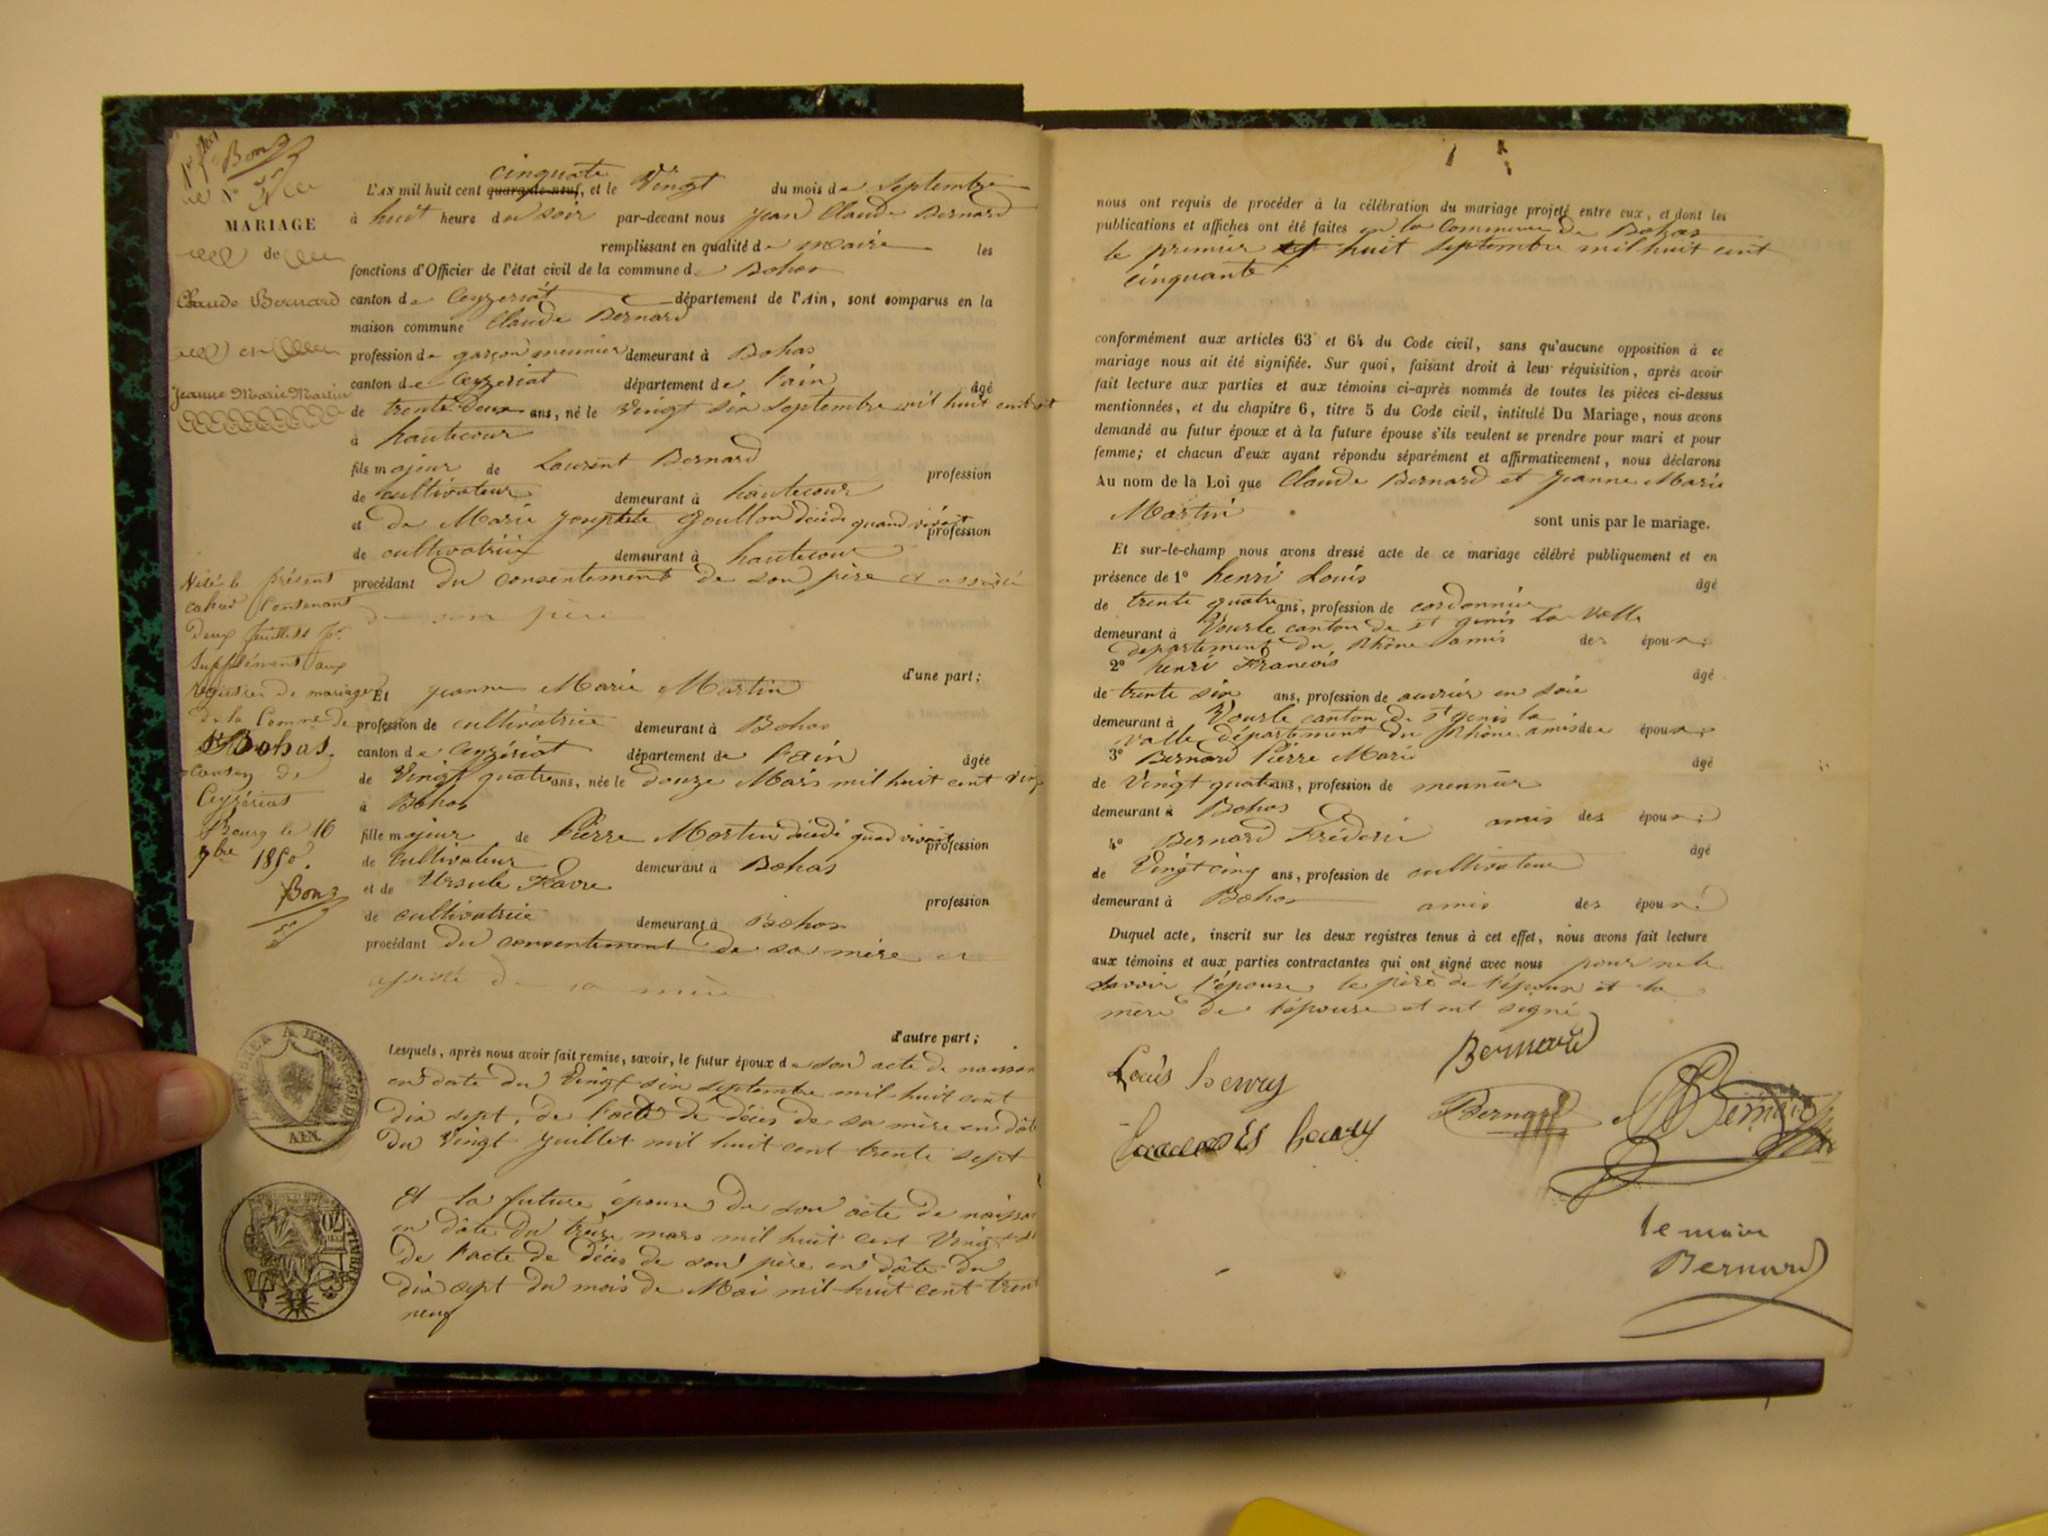 Bon
N° 3
MARIAGE
de
Claude Bernard
et
Jeanne Marie Martin
cinquante
L'AN mil huit cent quarante-neuf, et le Vingt du mois de Septembre
à huit heure du soir par-devant nous Jean Claude Bernard
remplissant en qualité de maire les
fonctions d'Officier de l'état civil de la commune de Bohas
canton de Ceyzeriat département de l'Ain, sont comparus en la
maison commune Claude Bernard
profession de garçon meunier demeurant à Bohas
canton de Ceyzeriat département de l'ain âgé
de trente deux ans, né le Vingt six septembre mil huit cent
à hautecour
fils majeur de Laurent Bernard profession
de cultivateur demeurant à hautecour
et de Marie Goullon décédé quand vivait profession
de cultivatrice demeurant à hautecour
procédant du consentement de son père et assisté
de son père
d'une part;
Et Jeanne Marie Martin
profession de cultivatrice demeurant à Bohas
canton de Ceyzériat département de l'ain âgée
de Vingt quatre ans, née le douze Mars mil huit cent
à Bohas
fille majeur de Pierre Martin décédé quand vivait profession
de cultivateur demeurant à Bohas
et de Ursule Favre profession
de cultivatrice demeurant à Bohas
procédant du consentement de sa mère et
assisté de sa mère
d'autre part;
Visé le présent
cahier contenant
deux feuillets pr
Supplément aux
registres de mariages
de la Comne de
Bohas.
Canton de
Ceyzériat
Bourg le 16
7bre 1850.
Bon
AIN.
TIMBRE
Lesquels, après nous avoir fait remise, savoir, le futur époux de son acte de
en date du Vingt six septembre mil huit cent
dix sept, de l'acte de décès de sa mère en
du Vingt Juillet mil huit cent trente sept
Et la future épouse de son acte de
en dâte du treize mars mil huit cent Vingt
de l'acte de décès de son père en dâte du
dix sept du mois de Mai mil huit cent
neuf
nous ont requis de procéder à la célébration du mariage projeté entre eux, et dont les
publications et affiches ont été faites en la Commune de Bohas
le premier et huit Septembre mil huit cent
cinquante
conformément aux articles 63 et 64 du Code civil, sans qu'aucune opposition à ce
mariage nous ait été signifiée. Sur quoi, faisant droit à leur réquisition, après avoir
fait lecture aux parties et aux témoins ci-après nommés de toutes les pièces ci-dessus
mentionnées, et du chapitre 6, titre 5 du Code civil, intitulé Du Mariage, nous avons
demandé au futur époux et à la future épouse s'ils veulent se prendre pour mari et pour
femme; et chacun d'eux ayant répondu séparément et affirmativement, nous déclarons
Au nom de la Loi que Claude Bernard et Jeanne Marie
Martin sont unis par le mariage.
Et sur-le-champ nous avons dressé acte de ce mariage célébré publiquement et en
présence de 1° henri Louis âgé
de trente quatre ans, profession de cordonnier
demeurant à Vourle canton de St genis la Valle
département du Rhône amis des époux;
2° henri François âgé
de trente six ans, profession de ouvrier en soie
demeurant à Vourle canton de St genis la
valle département du Rhône amis des époux;
3° Bernard Pierre Marie âgé
de Vingt quatre ans, profession de meunier
demeurant à Bohas amis des époux;
4° Bernard Fréderic âgé
de Vingt cinq ans, profession de cultivateur
demeurant à Bohas amis des époux
Duquel acte, inscrit sur les deux registres tenus à cet effet, nous avons fait lecture
aux témoins et aux parties contractantes qui ont signé avec nous pour ne le
savoir l'épouse, le père de l'époux et la
mère de l'épouse et ont signé
Bernard
Louis henry
Bernard
Bernard
François henry
le maire
Bernard